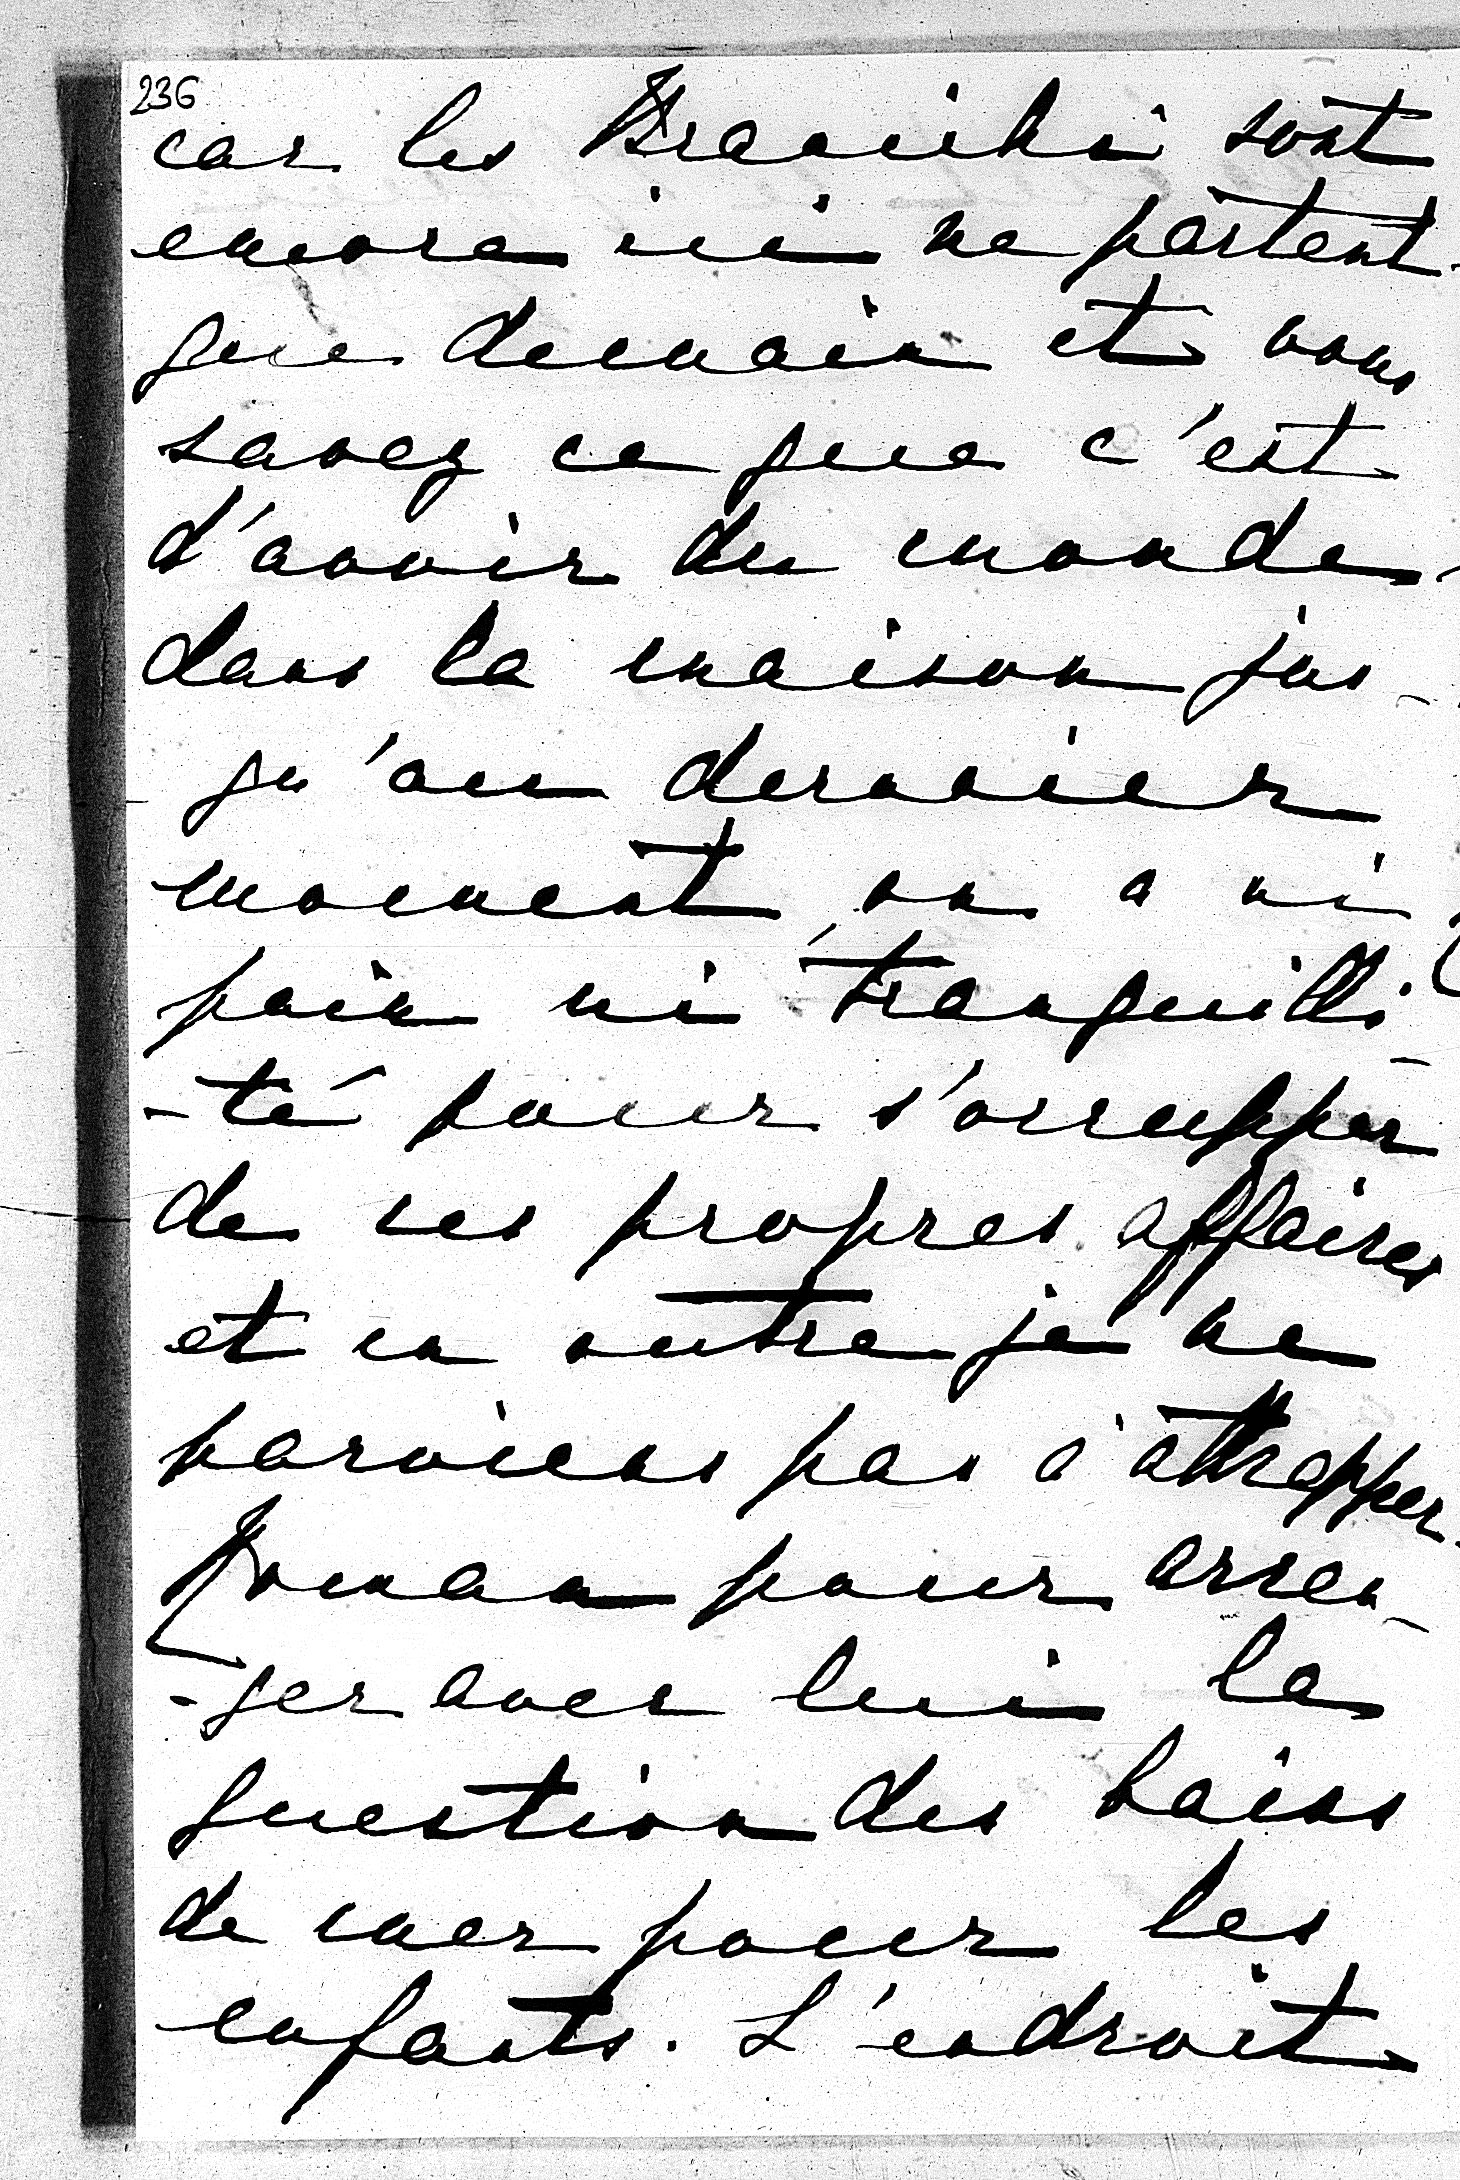 236
car les Branicki sont
encore ici ne partent
que demain et vous
savez ce que c'est
d'avoir du monde
dans la maison jus-
qu'au dernier
moment, on a ni
paix ni tranquilli-
-té pour s'occupper
de ses propres affaires
et en outre je ne
parviens pas à attrapper
pour arran-
-ger avec lui la
question des bains
de mer pour les
enfants. L'endroit